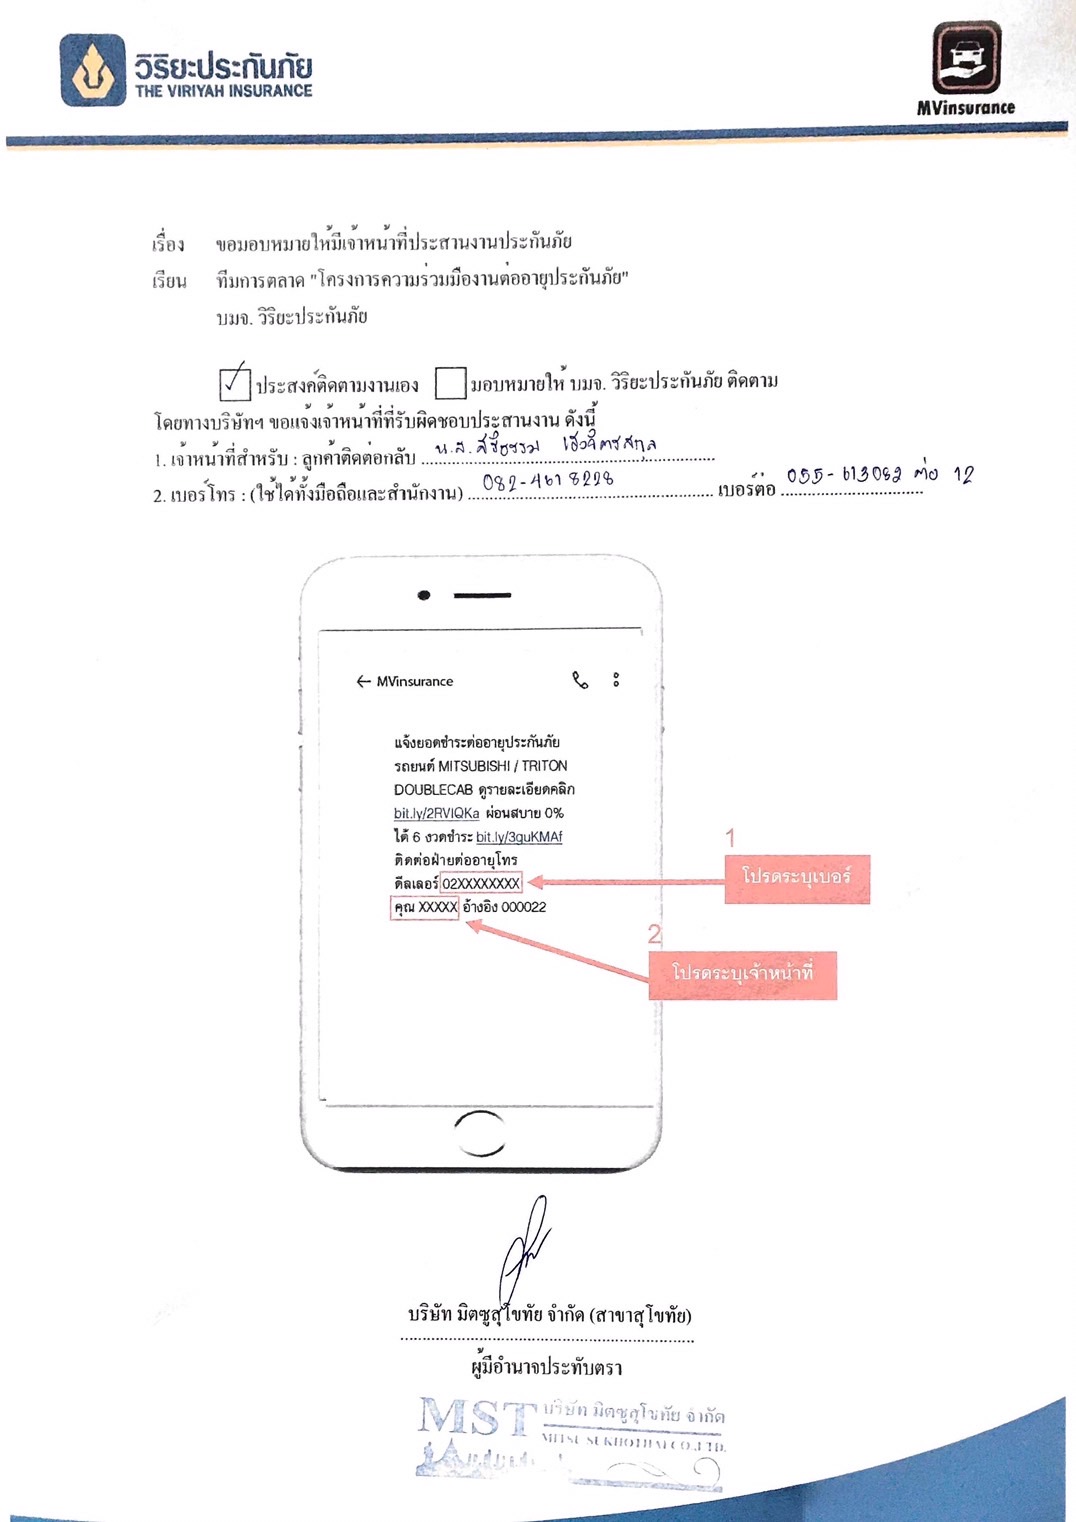 วิริยะประกันภัย
THE VIRIYAH INSURANCE
MVinsurance
เรื่อง ขอมอบหมายให้มีเจ้าหน้าที่ประสานงานประกันภัย
เรียน ทีมการตลาด "โครงการความร่วมมืองานต่ออายุประกันภัย"
บมจ. วิริยะประกันภัย
ประสงค์ติดตามงานเอง มอบหมายให้ บมจ. วิริยะประกันภัย ติดตาม
โดยทางบริษัทฯ ขอแจ้งเจ้าหน้าที่ที่รับผิดชอบประสานงาน ดังนี้
1. เจ้าหน้าที่สำหรับ : ลูกค้าติดต่อกลับ น.ส.
2. เบอร์โทร : (ใช้ได้ทั้งมือถือและสำนักงาน) 082-4618228 เบอร์ต่อ 055-613082 ต่อ 12
MVinsurance
แจ้งยอดชำระต่ออายุประกันภัย
รถยนต์ MITSUBISHI / TRITON
DOUBLECAB ดูรายละเอียดคลิก
bit.ly/2RVIQKa ผ่อนสบาย 0%
ได้ 6 งวดชำระ bit.ly/3guKMAf
ติดต่อฝ่ายต่ออายุโทร
ดีลเลอร์ 02XXXXXXXX
คุณ XXXXX อ้างอิง 000022
1
โปรดระบุเบอร์
2
โปรดระบุเจ้าหน้าที่
บริษัท มิตซูสุโขทัย จำกัด (สาขาสุโขทัย)
ผู้มีอำนาจประทับตรา
MST บริษัท มิตซูสุโขทัย จำกัด
MITSU SUKHOTHAI CO.,LTD.